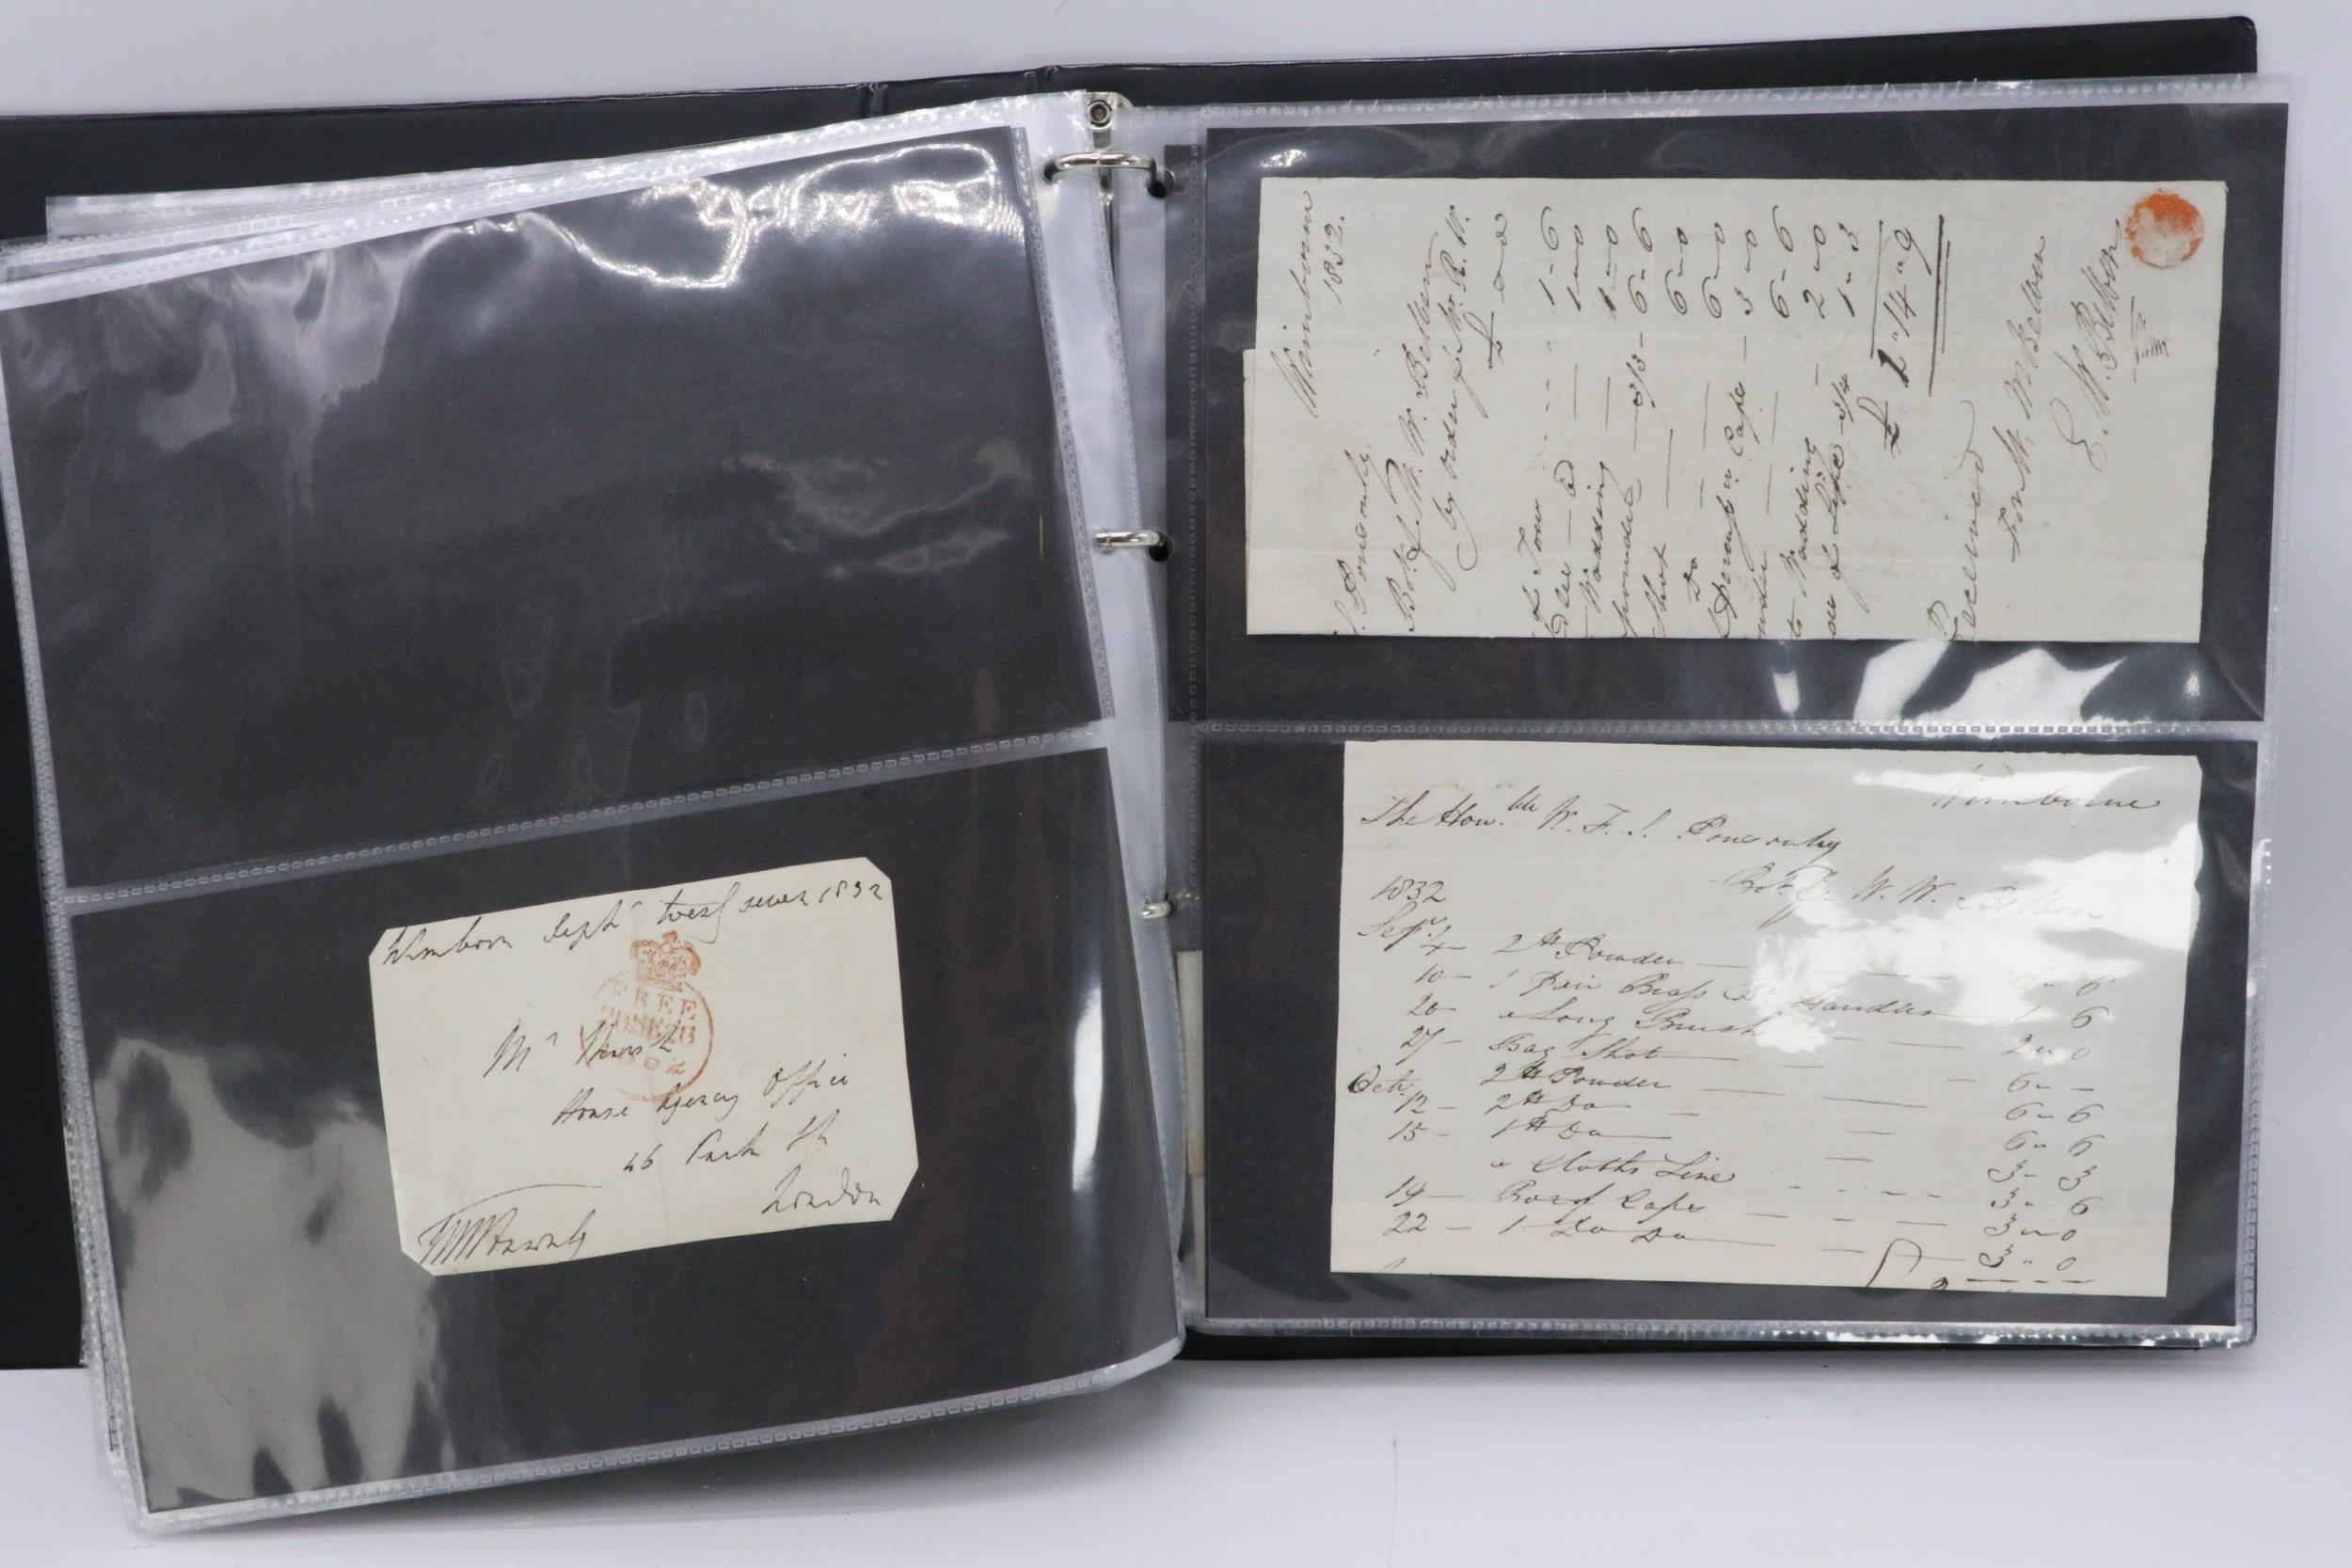 Wimborn Sept^r twenty seven 1832
FREE
28SE28
1832
M^r
House Agency Office
46 Park St
London
Wimborn
1832.
Ponsonby
Bot. of W. W. Belben
by order of Mr. R. W.
£ s d
Tow 1-6
1-0
Wadding 1-0
powder 3/3 6-6
Shot 6-0
Do 6-0
Caps 3-0
6-6
Wadding 2-0
of Line 3/4 1-3
£ 2"14"9
Received
For W. W. Belben
E. W. Belben
Wimborne
The Hon.ble W. F. S. Ponsonby
Bot. of W. W. Belben
1832
Sep^r. 4 - 2 ℔ Powder 6" 6
10 - 1 Pair Brass Handles 1 6
20 a Long Brush 2 " 0
27 - Bag Shot 6 " -
2 ℔ Powder 6 " 6
Oct^r. 12 - 2 ℔ Do 6 " 6
15 - 1 ℔ Do 3 " 3
a Cloths Line 3 " 6
19 - Box of Caps 3 " 0
22 - 1 Do Do 3 " 0